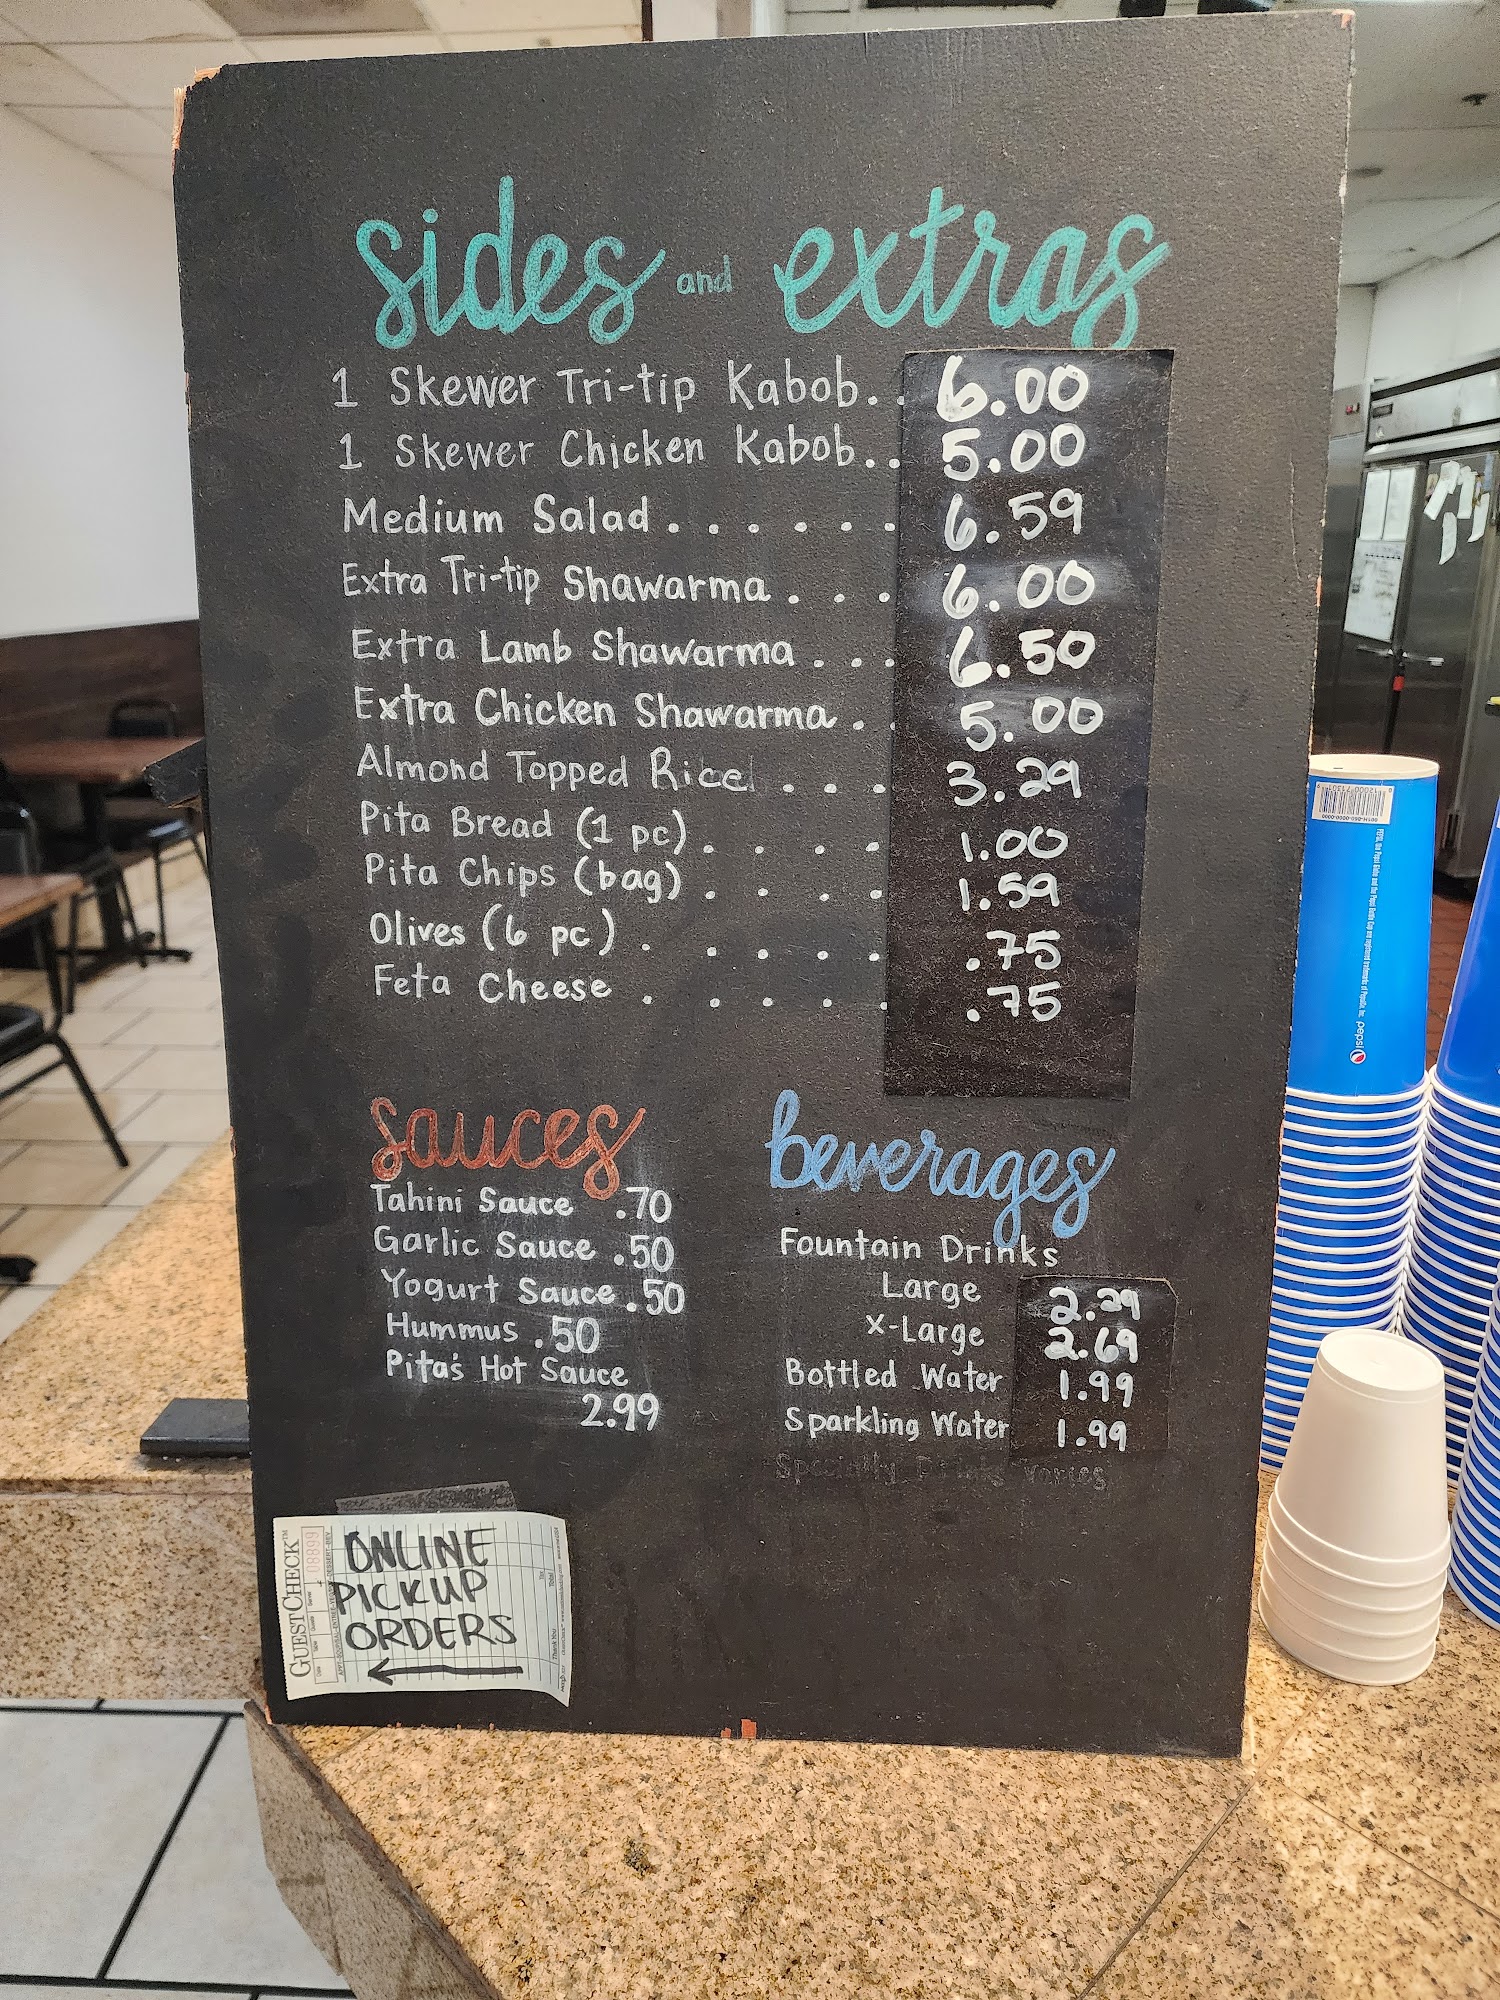 sides and extras
1 Skewer Tri-tip Kabob.. 6.00
1 Skewer Chicken Kabob.. 5.00
Medium Salad...... 6.59
Extra Tri-tip Shawarma... 6.00
Extra Lamb Shawarma... 6.50
Extra Chicken Shawarma.. 5.00
Almond Topped Rice... 3.29
Pita Bread (1 pc).... 1.00
Pita Chips (bag).... 1.59
Olives (6 pc)..... .75
Feta Cheese..... .75
sauces
Tahini Sauce .70
Garlic Sauce .50
Yogurt Sauce .50
Hummus .50
Pita's Hot Sauce
2.99
beverages
Fountain Drinks
Large 2.29
X-Large 2.69
Bottled Water 1.99
Sparkling Water 1.99
Specialty Drinks varies
GUESTCHECK™
08899
ONLINE
PICKUP
ORDERS
Thank You
pepsi